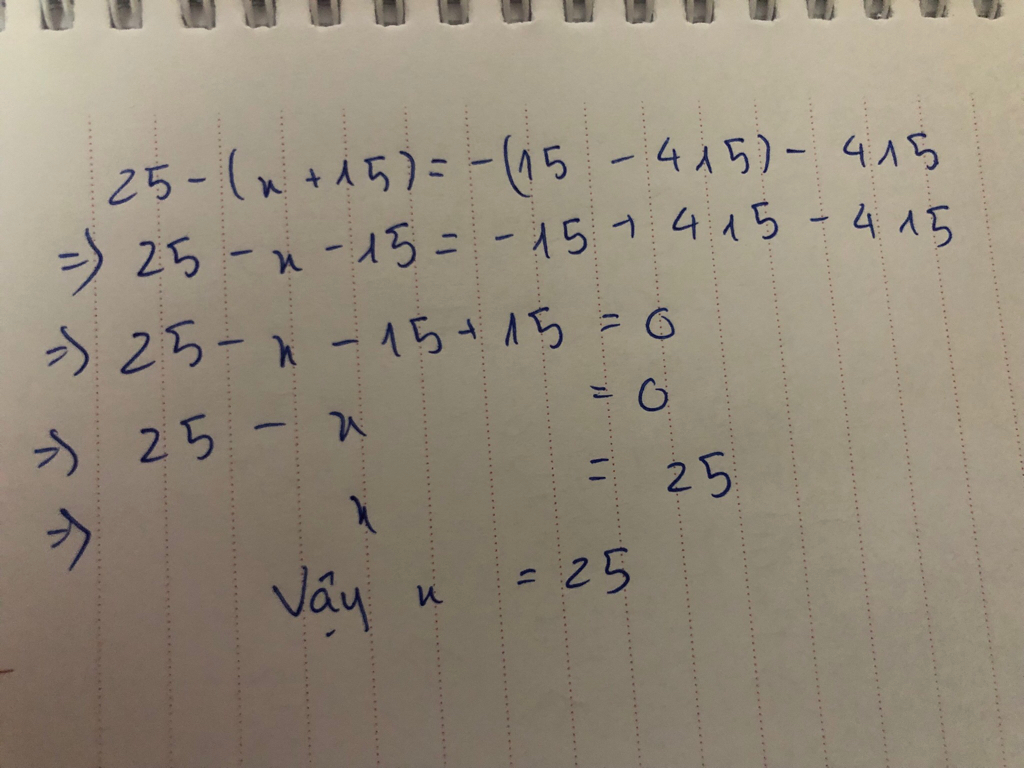 25 - (x + 15) = -(15 - 415) - 415
=> 25 - x - 15 = -15 + 415 - 415
=> 25 - x - 15 + 15 = 0
=> 25 - x = 0
=> x = 25
Vậy x = 25